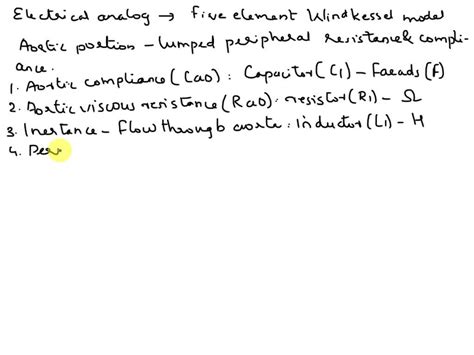 Electrical analog → five element Windkessel model
Aortic portion - lumped peripheral resistance & compli-
ance.
1. Aortic compliance (Cao) : Capacitor (C1) - Farads (F)
2. Aortic viscous resistance (Rao) : resistor (R1) - Ω
3. Inertance - flow through aorta : inductor (L1) - H
4. Per